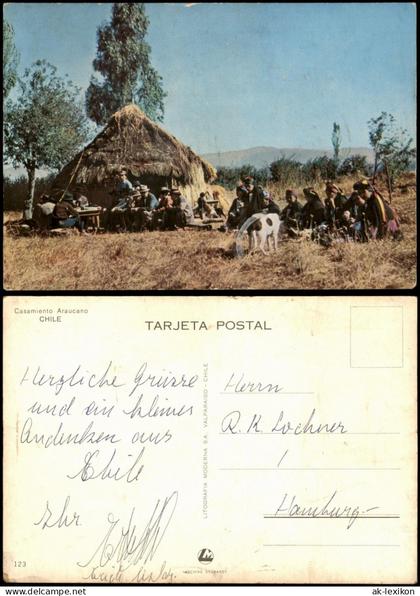 Casamiento Araucano
CHILE
TARJETA POSTAL
Herzliche Grüsse
und ein kleines
Andenken aus
Chile
Ihr
LITOGRAFIA MODERNA S.A. VALPARAISO - CHILE
Herrn
R. K. Lochner
Hamburg-
123
ak-lexikon